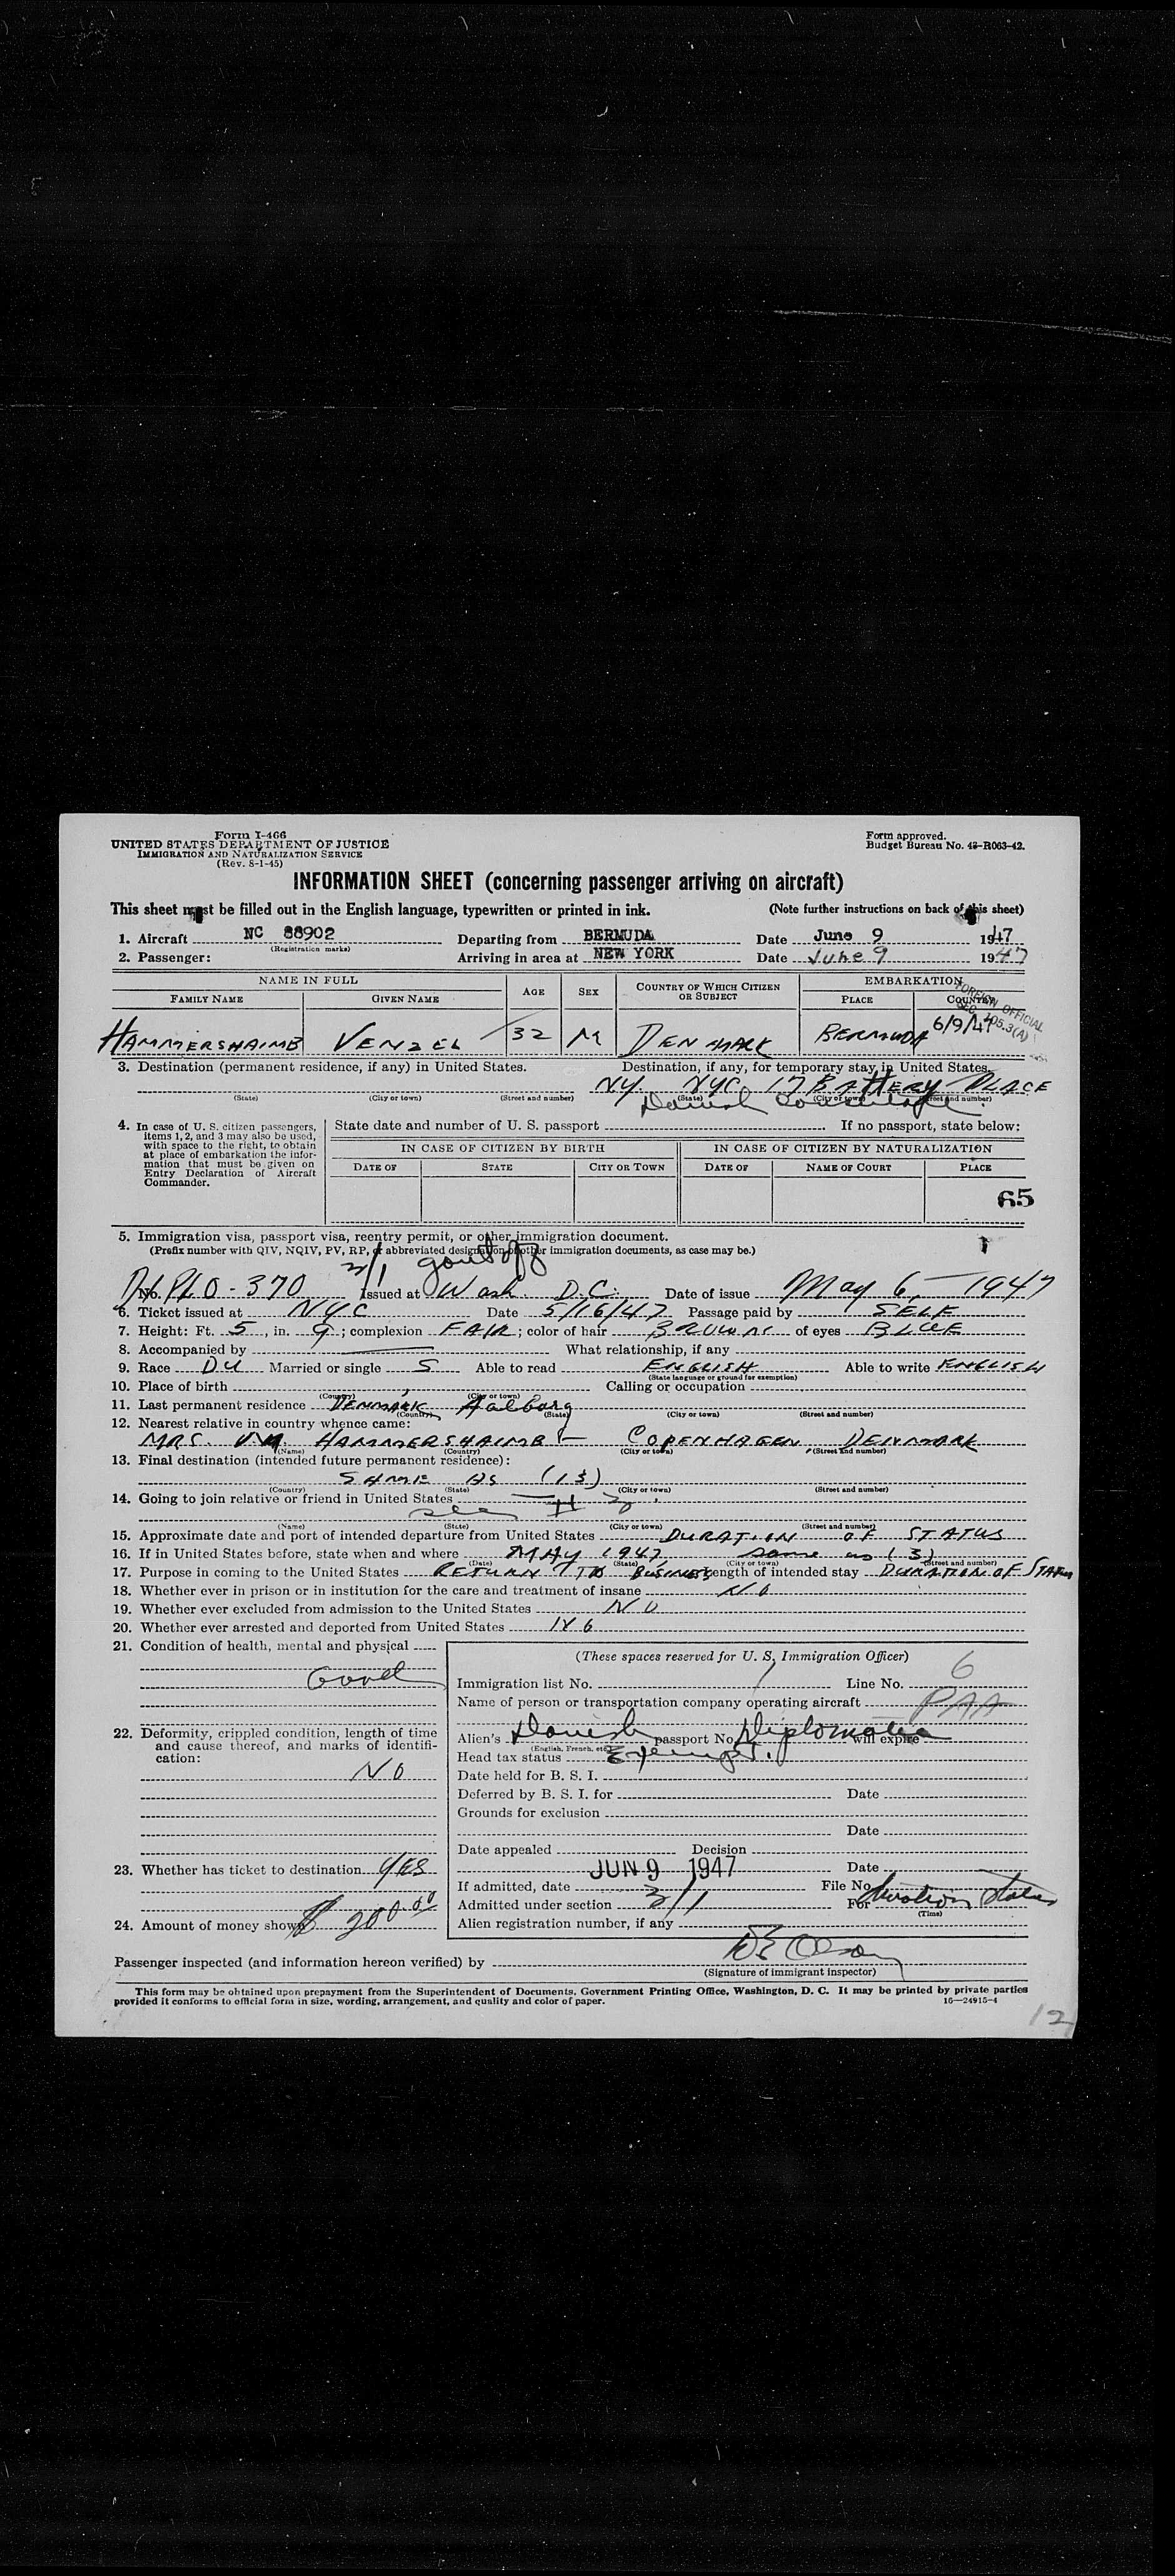 Form I-466
UNITED STATES DEPARTMENT OF JUSTICE
IMMIGRATION AND NATURALIZATION SERVICE
(Rev. 8-1-45)
Form approved.
Budget Bureau No. 43-R063-42.
INFORMATION SHEET (concerning passenger arriving on aircraft)
This sheet must be filled out in the English language, typewritten or printed in ink. (Note further instructions on back of this sheet)
1. Aircraft NC 88902 Departing from BERMUDA Date June 9 1947
(Registration marks)
2. Passenger: Arriving in area at NEW YORK Date June 9 1947
NAME IN FULL AGE SEX COUNTRY OF WHICH CITIZEN OR SUBJECT EMBARKATION
FAMILY NAME GIVEN NAME PLACE COUNTRY
FOREIGN OFFICIAL
SEC. 105.3(A)
HAMMERSHAIMB VENZEL 32 M DENMARK BERMUDA 6/9/47
3. Destination (permanent residence, if any) in United States. Destination, if any, for temporary stay in United States.
NY NYC 17 BATTERY PLACE
(State) (City or town) (Street and number) (State) (City or town) (Street and number)
Danish Consulate.
4. In case of U. S. citizen passengers, items 1, 2, and 3 may also be used, with space to the right, to obtain at place of embarkation the information that must be given on Entry Declaration of Aircraft Commander.
State date and number of U. S. passport If no passport, state below:
IN CASE OF CITIZEN BY BIRTH IN CASE OF CITIZEN BY NATURALIZATION
DATE OF STATE CITY OR TOWN DATE OF NAME OF COURT PLACE
65
5. Immigration visa, passport visa, reentry permit, or other immigration document.
(Prefix number with QIV, NQIV, PV, RP, or abbreviated designation of other immigration documents, as case may be.)
3/1 gov't off
No. DIPLO-370 Issued at Wash. D.C. Date of issue May 6 - 1947
6. Ticket issued at NYC Date 5/16/47 Passage paid by SELF
7. Height: Ft. 5, in. 9; complexion FAIR; color of hair BROWN of eyes BLUE
8. Accompanied by What relationship, if any
9. Race DU Married or single S Able to read ENGLISH Able to write ENGLISH
(State language or ground for exemption)
10. Place of birth Calling or occupation
(Country) (City or town)
11. Last permanent residence DENMARK Aalborg
(Country) (State) (City or town) (Street and number)
12. Nearest relative in country whence came:
MRS. V.M. HAMMERSHAIMB - COPENHAGEN DENMARK
(Name) (Country) (City or town) (Street and number)
13. Final destination (intended future permanent residence):
SAME AS (13)
(Country) (State) (City or town) (Street and number)
14. Going to join relative or friend in United States
see # 3.
(Name) (State) (City or town) (Street and number)
15. Approximate date and port of intended departure from United States DURATION OF STATUS
16. If in United States before, state when and where MAY 1947 same as (3)
(Date) (State) (City or town) (Street and number)
17. Purpose in coming to the United States RETURN TO BUSINESS Length of intended stay DURATION OF STATUS
18. Whether ever in prison or in institution for the care and treatment of insane NO
19. Whether ever excluded from admission to the United States NO
20. Whether ever arrested and deported from United States NO
21. Condition of health, mental and physical
Good
22. Deformity, crippled condition, length of time and cause thereof, and marks of identification:
NO
23. Whether has ticket to destination YES
24. Amount of money shown $ 200.00
(These spaces reserved for U. S. Immigration Officer)
Immigration list No. 1 Line No. 6
Name of person or transportation company operating aircraft PAA
Alien's Danish passport No. Diplomatic will expire
(English, French, etc.)
Head tax status Exempt.
Date held for B. S. I.
Deferred by B. S. I. for Date
Grounds for exclusion
Date
Date appealed Decision
JUN 9 1947 Date
If admitted, date File No.
Admitted under section 3/1 For duration status
(Time)
Alien registration number, if any
Passenger inspected (and information hereon verified) by D E Olson
(Signature of immigrant inspector)
This form may be obtained upon prepayment from the Superintendent of Documents, Government Printing Office, Washington, D. C. It may be printed by private parties
provided it conforms to official form in size, wording, arrangement, and quality and color of paper. 16-24915-4
12